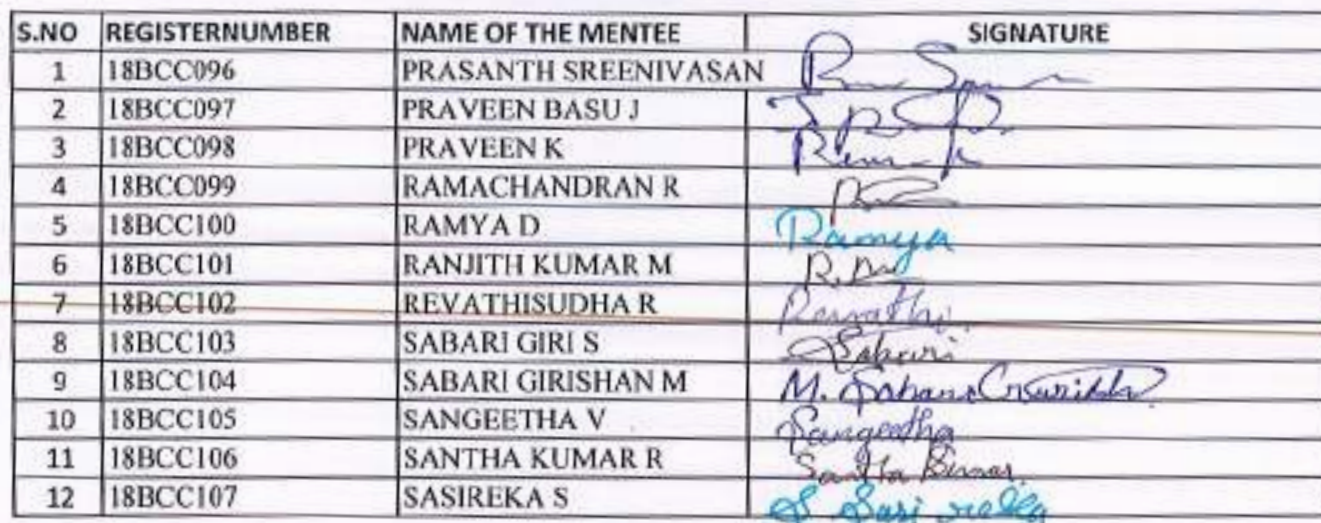 S.NO REGISTERNUMBER NAME OF THE MENTEE SIGNATURE
1 18BCC096 PRASANTH SREENIVASAN
2 18BCC097 PRAVEEN BASU J
3 18BCC098 PRAVEEN K
4 18BCC099 RAMACHANDRAN R
5 18BCC100 RAMYA D Ramya
6 18BCC101 RANJITH KUMAR M
7 18BCC102 REVATHISUDHA R Revathi
8 18BCC103 SABARI GIRI S Sabari
9 18BCC104 SABARI GIRISHAN M M.
10 18BCC105 SANGEETHA V Sangeetha
11 18BCC106 SANTHA KUMAR R Santha Kumar
12 18BCC107 SASIREKA S S Sasi reka